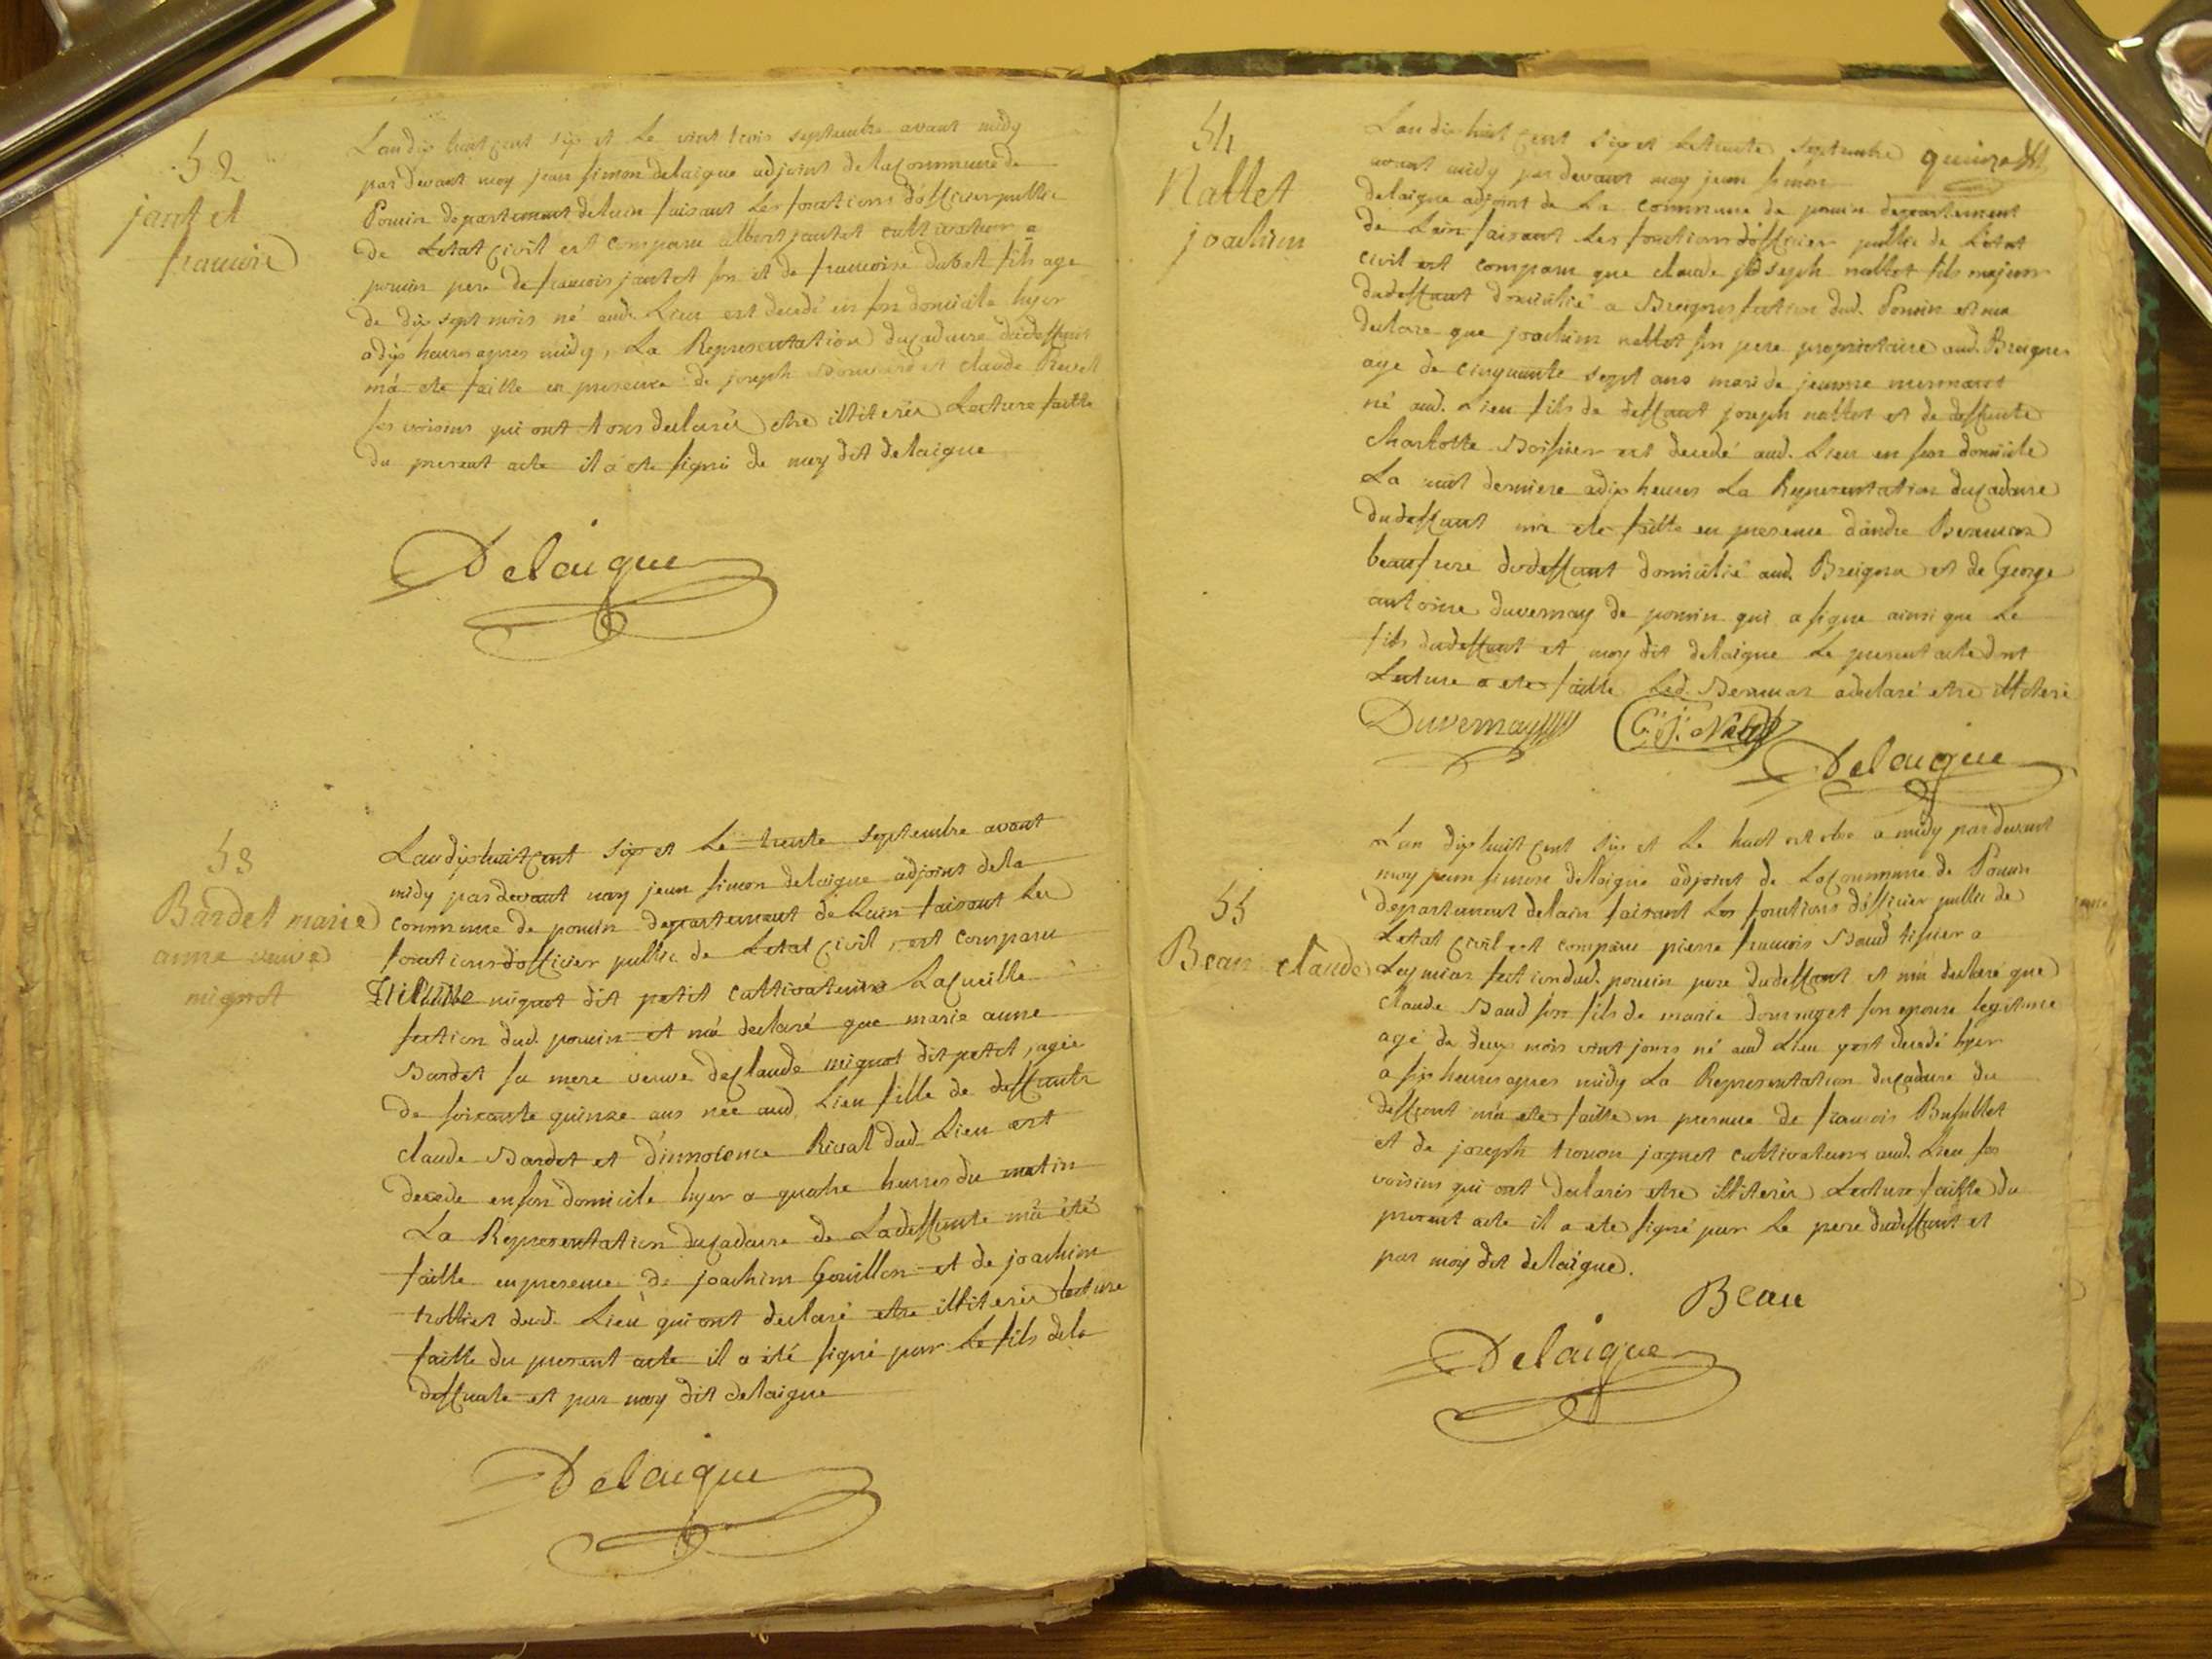 52
jantet
francois
Lan dix huit cent six et le vint trois septembre avant midy
par devant moy jean simon delaigue adjoint de la commune de
Poncin departement de lain faisant les fonctions dofficier public
de Letat civil est comparu albert jantet cultivateur a
poncin pere de francois jantet son et de francoise dubet fils age
de dix sept mois né aud. Lieu est decedé en son domicile hyer
a dix heures apres midy, La Representation du cadavre du deffunt
m'a ete faitte en presence de joseph et claude
ses voisins qui ont tous declarés etre illiterés Lecture faitte
du present acte il a ete signé de moy dit delaigue
Delaigue
53
Bardet marie
anne veuve
mignot
Lan dix huit cent six et Le trente septembre avant
midy par devant moy jean simon delaigue adjoint de la
commune de poncin departement de Lain faisant les
fonctions dofficier public de Letat civil, est comparu
mignot dit petit cultivateur a Lacueille
section dud. poncin et m'a declaré que marie anne
Bardet sa mere veuve de claude mignot dit petit, agée
de soixante quinze ans née aud. Lieu fille de deffunts
claude Bardet et d'innocence Rival dud. Lieu est
decede en son domicile hyer a quatre heures du matin
La Representation du cadavre de La deffunte m'a été
faitte en presence de joachim Gouillon et de joachim
trolliet dud. Lieu qui ont declaré etre illiterés lecture
faitte du present acte il a été signé par Le fils de la
deffunte et par moy dit delaigue
Delaigue
54
Nallet
joachim
Lan dix huit cent six et le trente septembre
avant midy par devant moy jean simon
delaigue adjoint de La commune de poncin departement
de Lain faisant Les fonctions dofficier public de Létat
civil est comparu que claude joseph nallet fils majeur
du deffunt domicilié a Breignes section dud. Poncin et m'a
declare que joachim nallet son pere proprietaire aud. Breignes
age de cinquante sept ans mari de jeanne
né aud. Lieu fils de deffunt joseph nallet et de deffunte
charlotte Boissier est decedé aud. Lieu en son domicile
La nuit derniere a dix heures La Representation du cadavre
du deffunt m'a ete faitte en presence d'andre
beaufrere du deffunt domicilié aud. Breignes et de George
antoine duvernay de poncin qui a signe ainsi que Le
fils du deffunt et moy dit delaigue Le present acte dont
Lecture a ete faitte Led. a declaré etre illiteré
Duvernay C. J. Nallet
Delaigue
55
Beau claude
Lan dix huit cent six et Le huit octobre a midy par devant
moy jean simon delaigue adjoint de La commune de Poncin
departement delain faisant Les fonctions dofficier public de
Letat civil est comparu pierre francois Baud tissier a
Leymiat section dud. poncin pere du deffunt et m'a declaré que
claude Baud son fils de marie son epouse legitime
agé de deux mois vint jours né aud Lieu y est decedé hyer
a six heures apres midy La Representation du cadavre du
deffunt m'a ete faitte en presence de francois
et de joseph jaquet cultivateurs aud. Lieu ses
voisins qui ont declarés etre illiterés Lecture faitte du
present acte il a ete signé par Le pere du deffunt et
par moy dit delaigue.
Beau
Delaigue